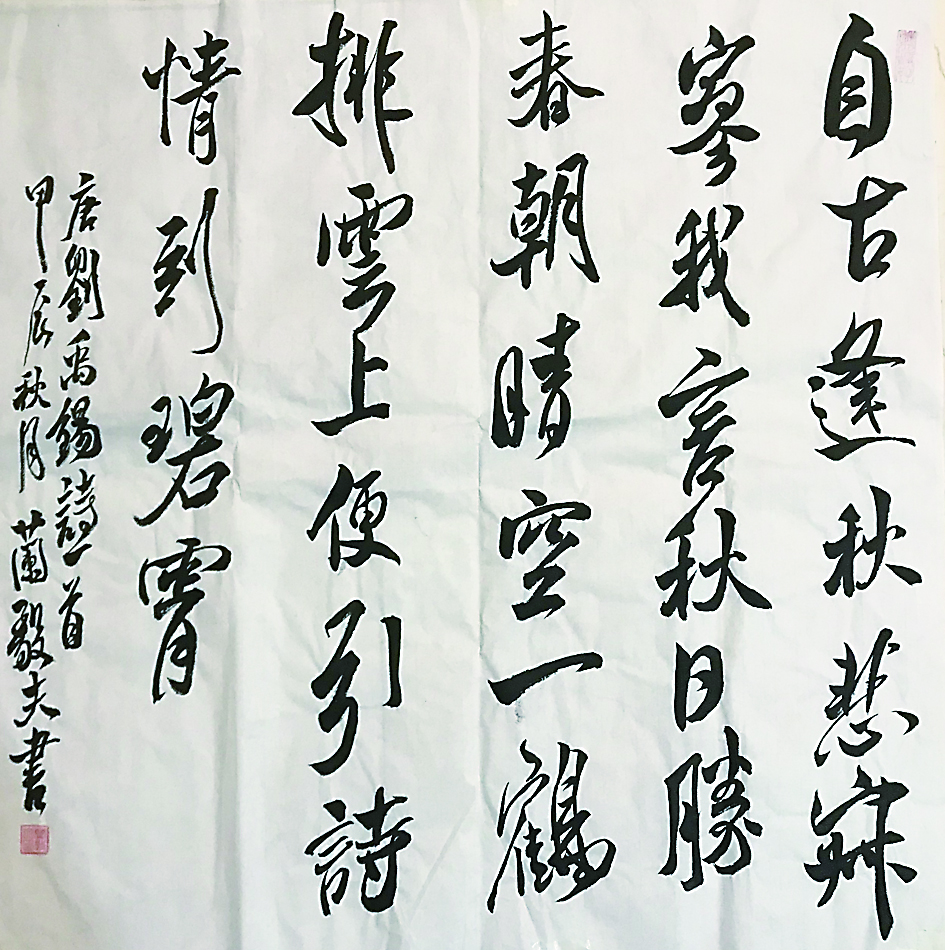 自古逢秋悲寂
寥我言秋日勝
春朝晴空一鶴
排雲上便引詩
情到碧霄
唐劉禹錫詩一首
甲辰秋月蘭毅夫書